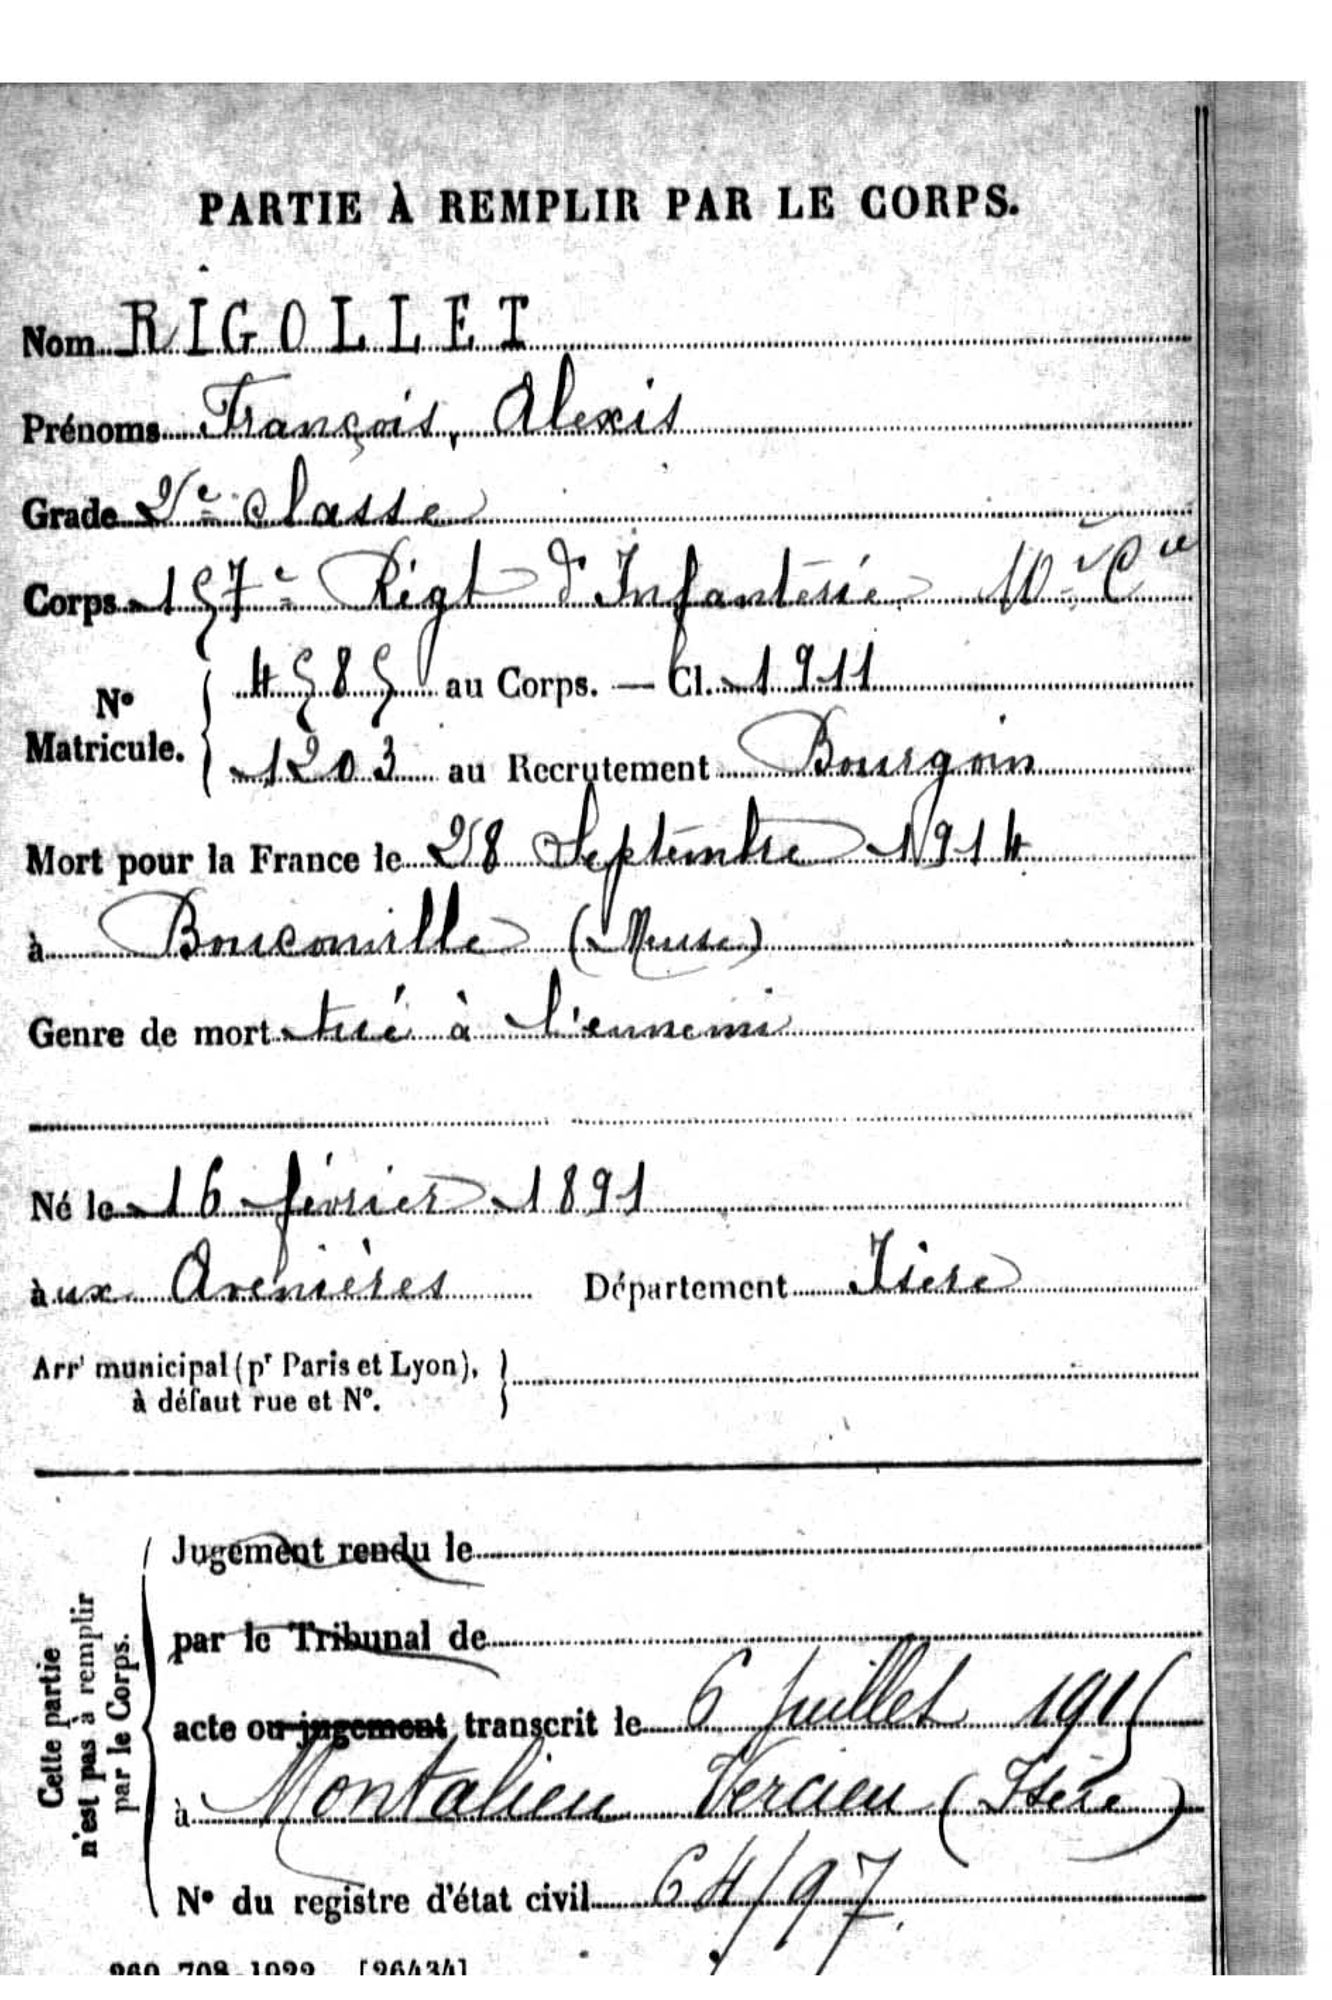 PARTIE À REMPLIR PAR LE CORPS.
Nom RIGOLLET
Prénoms François, Alexis
Grade 2e classe
Corps 157e Régt d'Infanterie 10e Cie
No Matricule. { 4585 au Corps. — Cl. 1911
1203 au Recrutement Bourgoin
Mort pour la France le 28 Septembre 1914
à Bouconville (Meuse)
Genre de mort tué à l'ennemi
Né le 16 février 1891
àux Avenières Département Isère
Arrt municipal (pr Paris et Lyon), }
à défaut rue et No.
Cette partie
n'est pas à remplir
par le Corps.
Jugement rendu le
par le Tribunal de
acte ou jugement transcrit le 6 Juillet 1915
à Montalieu Vercieu (Isère)
No du registre d'état civil 64/97.
260-708-1922. [26434]